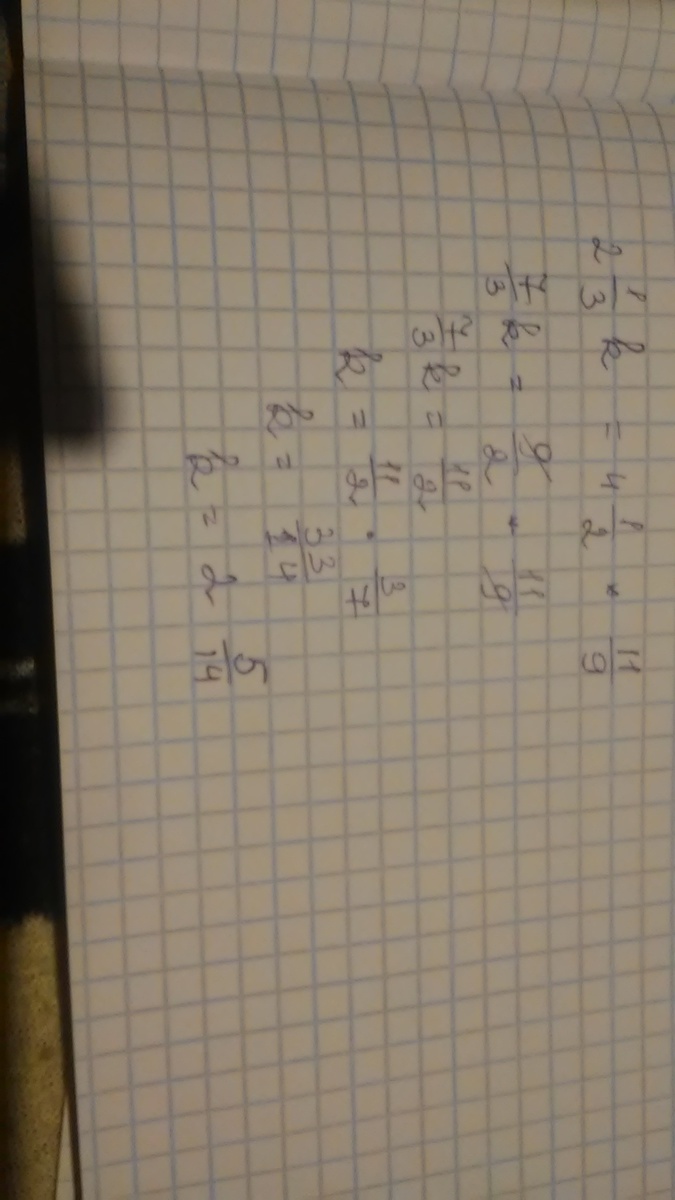 2 1/3 k = 4 1/2 * 11/9
7/3 k = 9/2 * 11/9
7/3 k = 11/2
k = 11/2 · 3/7
k = 33/14
k = 2 5/14